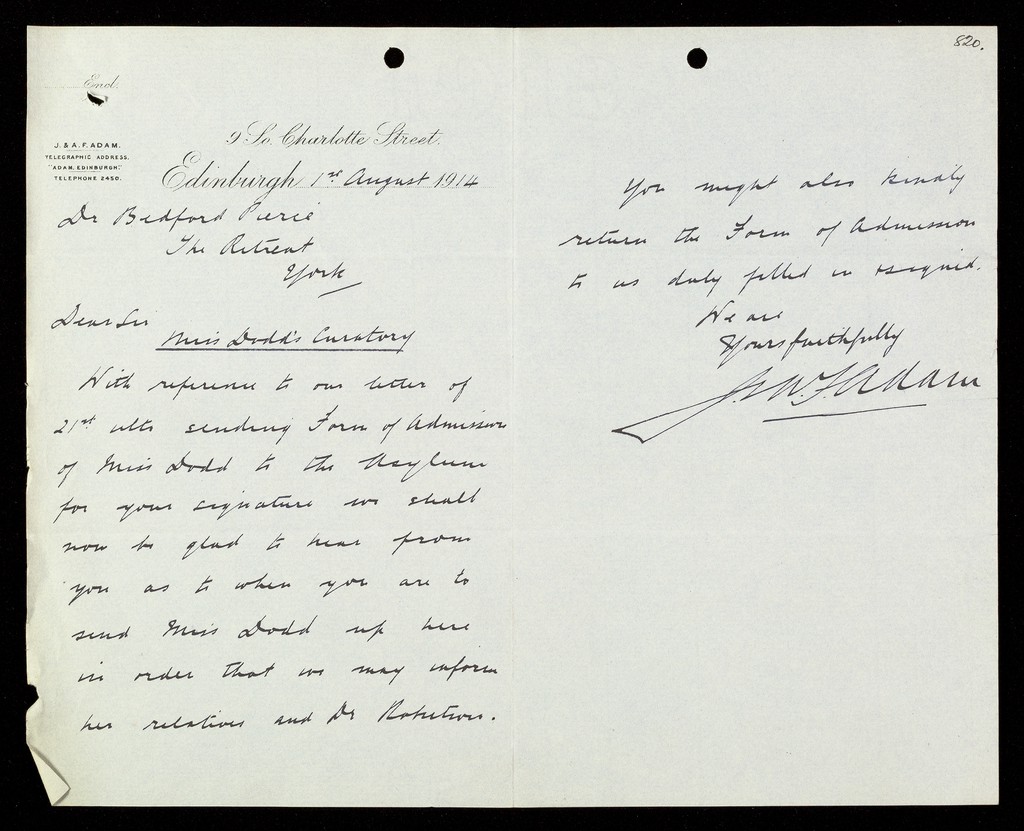 820.
Encl.
J. & A. F. ADAM.
TELEGRAPHIC ADDRESS,
"ADAM, EDINBURGH."
TELEPHONE 2450.
9 So. Charlotte Street.
Edinburgh 1st August 1914
Dr Bedford Pierce
The Retreat
York
Dear Sir
Miss Dodd's Curatory
With reference to our letter of
21st ulto sending Form of Admission
of Miss Dodd to the Asylum
for your signature we shall
now be glad to hear from
you as to when you are to
send Miss Dodd up here
in order that we may inform
her relatives and Dr Robertson.
You might also kindly
return the Form of Admission
to us duly filled in & signed.
We are
Yours faithfully
Adam